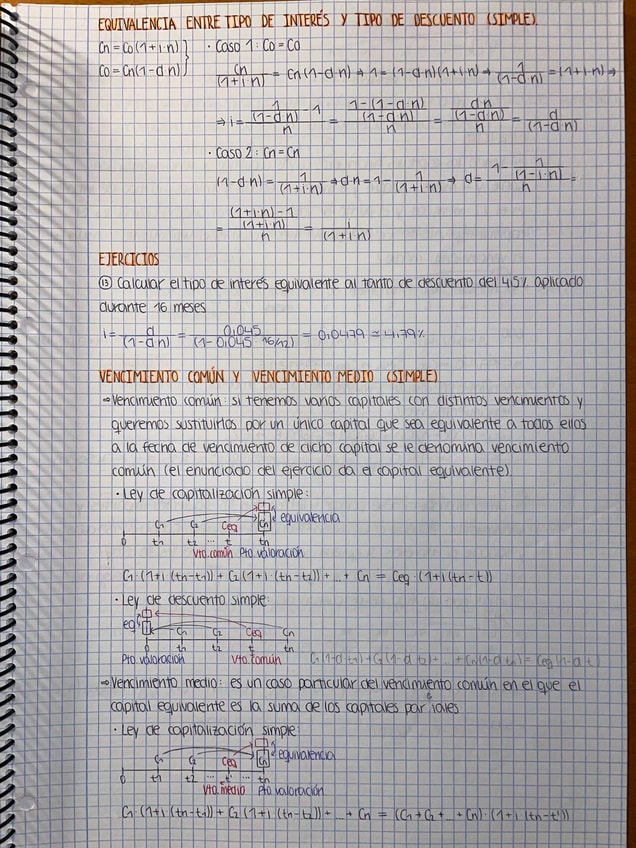 EQUIVALENCIA ENTRE TIPO DE INTERÉS Y TIPO DE DESCUENTO (SIMPLE).
Cn = Co(1+i·n)
Co = Cn(1-d·n)
· Caso 1: Co = Co
Cn/(1+i·n) = Cn(1-d·n) → 1 = (1-d·n)(1+i·n) → 1/(1-d·n) = (1+i·n) →
→ i = (1/(1-d·n) - 1)/n = ((1-(1-d·n))/(1-d·n))/n = (dn/(1-d·n))/n = d/(1-d·n)
· Caso 2: Cn = Cn
(1-d·n) = 1/(1+i·n) → d·n = 1 - 1/(1+i·n) → d = (1 - 1/(1-i·n))/n =
= (((1+i·n)-1)/(1+i·n))/n = i/(1+i·n)
EJERCICIOS
⑬ Calcular el tipo de interés equivalente al tanto de descuento del 4,5% aplicado
durante 16 meses
i = d/(1-d·n) = 0,045/(1-0,045·16/12) = 0,0479 ≃ 4,79%
VENCIMIENTO COMÚN Y VENCIMIENTO MEDIO (SIMPLE)
→ Vencimiento común: si tenemos varios capitales con distintos vencimientos y
queremos sustituirlos por un único capital que sea equivalente a todos ellos
a la fecha de vencimiento de dicho capital se le denomina vencimiento
común (el enunciado del ejercicio da el capital equivalente)
· Ley de capitalización simple:
C1 C2 Ceq Cn equivalencia
0 t1 t2 ... t tn
Vto. común Pto. valoración
C1·(1+i(tn-t1)) + C2(1+i·(tn-t2)) + ... + Cn = Ceq·(1+i(tn-t))
· Ley de descuento simple:
eq C1 C2 Ceq Cn
0 t1 t2 t tn
Pto. valoración Vto. común C1(1-d·t1)+C2(1-d·t2)+...+Cn(1-d·tn) = Ceq(1-d·t)
→ Vencimiento medio: es un caso particular del vencimiento común en el que el
capital equivalente es la suma de los capitales parciales
· Ley de capitalización simple:
C1 C2 Ceq Cn equivalencia
0 t1 t2 ... t' ... tn
Vto. medio Pto. valoración
C1·(1+i·(tn-t1)) + C2(1+i·(tn-t2)) + ... + Cn = (C1+C2+...+Cn)·(1+i·(tn-t'))